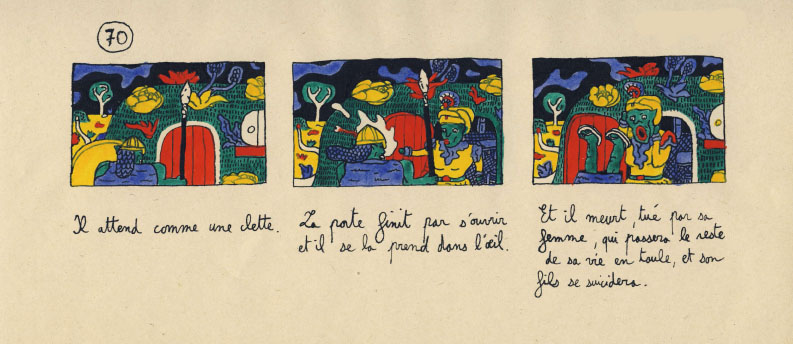 70
Il attend comme une clette.
La porte finit par s'ouvrir
et il se la prend dans l'œil.
Et il meurt, tué par sa
femme, qui passera le reste
de sa vie en taule, et son
fils se suicidera.